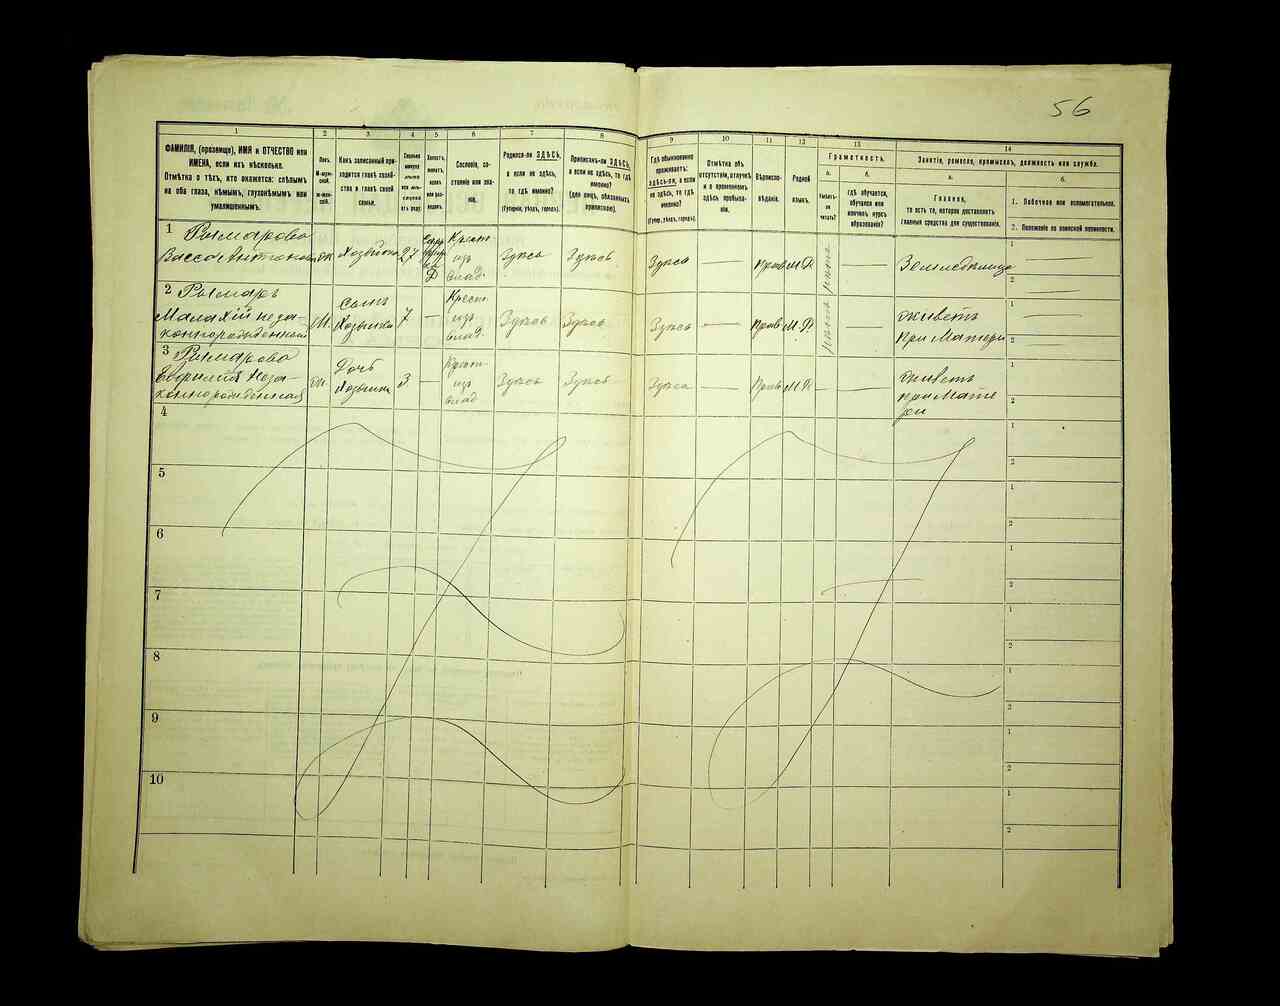 56
1
2
3
4
5
6
7
8
9
10
11
12
13
14
ФАМИЛІЯ, (прозвище), ИМЯ и ОТЧЕСТВО или
ИМЕНА, если ихъ нѣсколько.
Отмѣтка о тѣхъ, кто окажется: слѣпымъ
на оба глаза, нѣмымъ, глухонѣмымъ или
умалишеннымъ.
Полъ.
М-мужской.
Ж-женской.
Какъ записанный приходится
главѣ хозяйства
и главѣ своей
семьи.
Сколько
минуло
лѣтъ
Холостъ,
женатъ,
вдовъ
или разведенъ.
Сословіе, состояніе
или званіе.
Родился-ли ЗДѢСЬ,
а если не здѣсь,
то гдѣ именно?
(Губернія, уѣздъ, городъ).
Приписанъ-ли ЗДѢСЬ,
а если не здѣсь, то гдѣ
именно?
(для лицъ, обязанныхъ
припискою).
Гдѣ обыкновенно
проживаетъ:
ЗДѢСЬ-ли, а если
не здѣсь, то гдѣ
именно?
(Губер., уѣздъ, городъ).
Отмѣтка объ
отсутствіи, отлучкѣ
и о временномъ
здѣсь пребываніи.
Вѣроисповѣданіе.
Родной
языкъ.
Грамотность.
а.
Умѣетъ-ли
читать?
б.
гдѣ обучается,
обучался или
кончилъ курсъ
образованія?
Занятіе, ремесло, промыселъ, должность или служба.
а.
Главное,
то есть то, которое доставляетъ
главныя средства для существованія.
б.
1. Побочное или вспомогательное.
2. Положеніе по воинской повинности.
1 Рымарова
Васса Антонова ж Хозяйка 27 Д Крест. изъ влад. Здѣсь Здѣсь Здѣсь — Прав М.Р. — Земледѣлица
2 Рымаръ
Малахій незаконнорожденный М. Сынъ Хозяйки 7 — Крест. изъ влад. Здѣсь Здѣсь Здѣсь — Прав М.Р. — живетъ при Матери
3 Рымарова
незаконнорожденная ж. Дочь Хозяйки 3 — Крест. изъ влад Здѣсь Здѣсь Здѣсь — Прав М.Р. — — живетъ при Матери
4
5
6
7
8
9
10